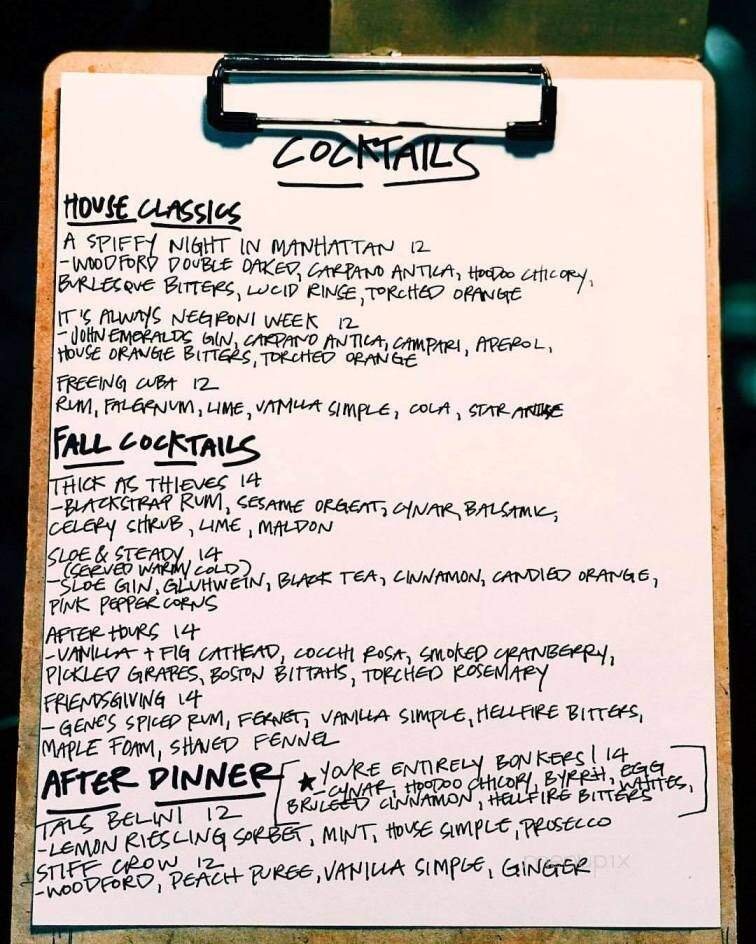 COCKTAILS
HOUSE CLASSICS
A SPIFFY NIGHT IN MANHATTAN 12
-WOODFORD DOUBLE OAKED, CARPANO ANTICA, HOODOO CHICORY,
BURLESQUE BITTERS, LUCID RINSE, TORCHED ORANGE
IT'S ALWAYS NEGRONI WEEK 12
-JOHN EMERALDS GIN, CARPANO ANTICA, CAMPARI, APEROL,
HOUSE ORANGE BITTERS, TORCHED ORANGE
FREEING CUBA 12
RUM, FALERNUM, LIME, VANILLA SIMPLE, COLA, STAR ANISE
FALL COCKTAILS
THICK AS THIEVES 14
-BLACKSTRAP RUM, SESAME ORGEAT, CYNAR, BALSAMIC,
CELERY SHRUB, LIME, MALDON
SLOE & STEADY 14
(SERVED WARM/COLD)
-SLOE GIN, GLUHWEIN, BLACK TEA, CINNAMON, CANDIED ORANGE,
PINK PEPPERCORNS
AFTER HOURS 14
-VANILLA + FIG CATHEAD, COCCHI ROSA, SMOKED CRANBERRY,
PICKLED GRAPES, BOSTON BITTAHS, TORCHED ROSEMARY
FRIENDSGIVING 14
-GENE'S SPICED RUM, FERNET, VANILLA SIMPLE, HELLFIRE BITTERS,
MAPLE FOAM, SHAVED FENNEL
AFTER DINNER
★ YOU'RE ENTIRELY BONKERS! 14
-CYNAR, HOODOO CHICORY, BYRRH, EGG WHITES,
BRULEED CINNAMON, HELLFIRE BITTERS
TALS BELINI 12
-LEMON RIESLING SORBET, MINT, HOUSE SIMPLE, PROSECCO
STIFF CROW 12
-WOODFORD, PEACH PUREE, VANILLA SIMPLE, GINGER